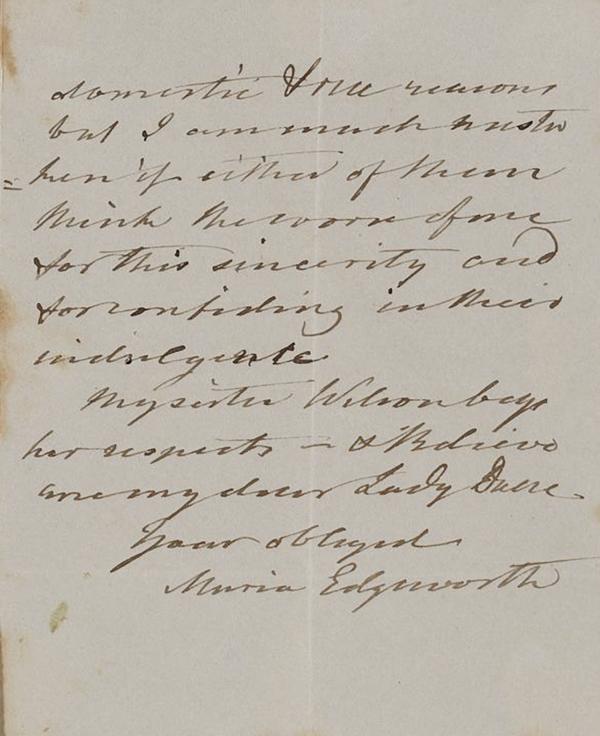 domestic & true reasons
but I am much mista
=ken if either of them
think the worse of me
for this sincerity and
for confiding in their
indulgence
My sister Wilson begs
her respects – & Believe
me my dear Lady Dacre –
Your obliged
Maria Edgeworth